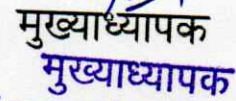 मुख्याध्यापक
मुख्याध्यापक